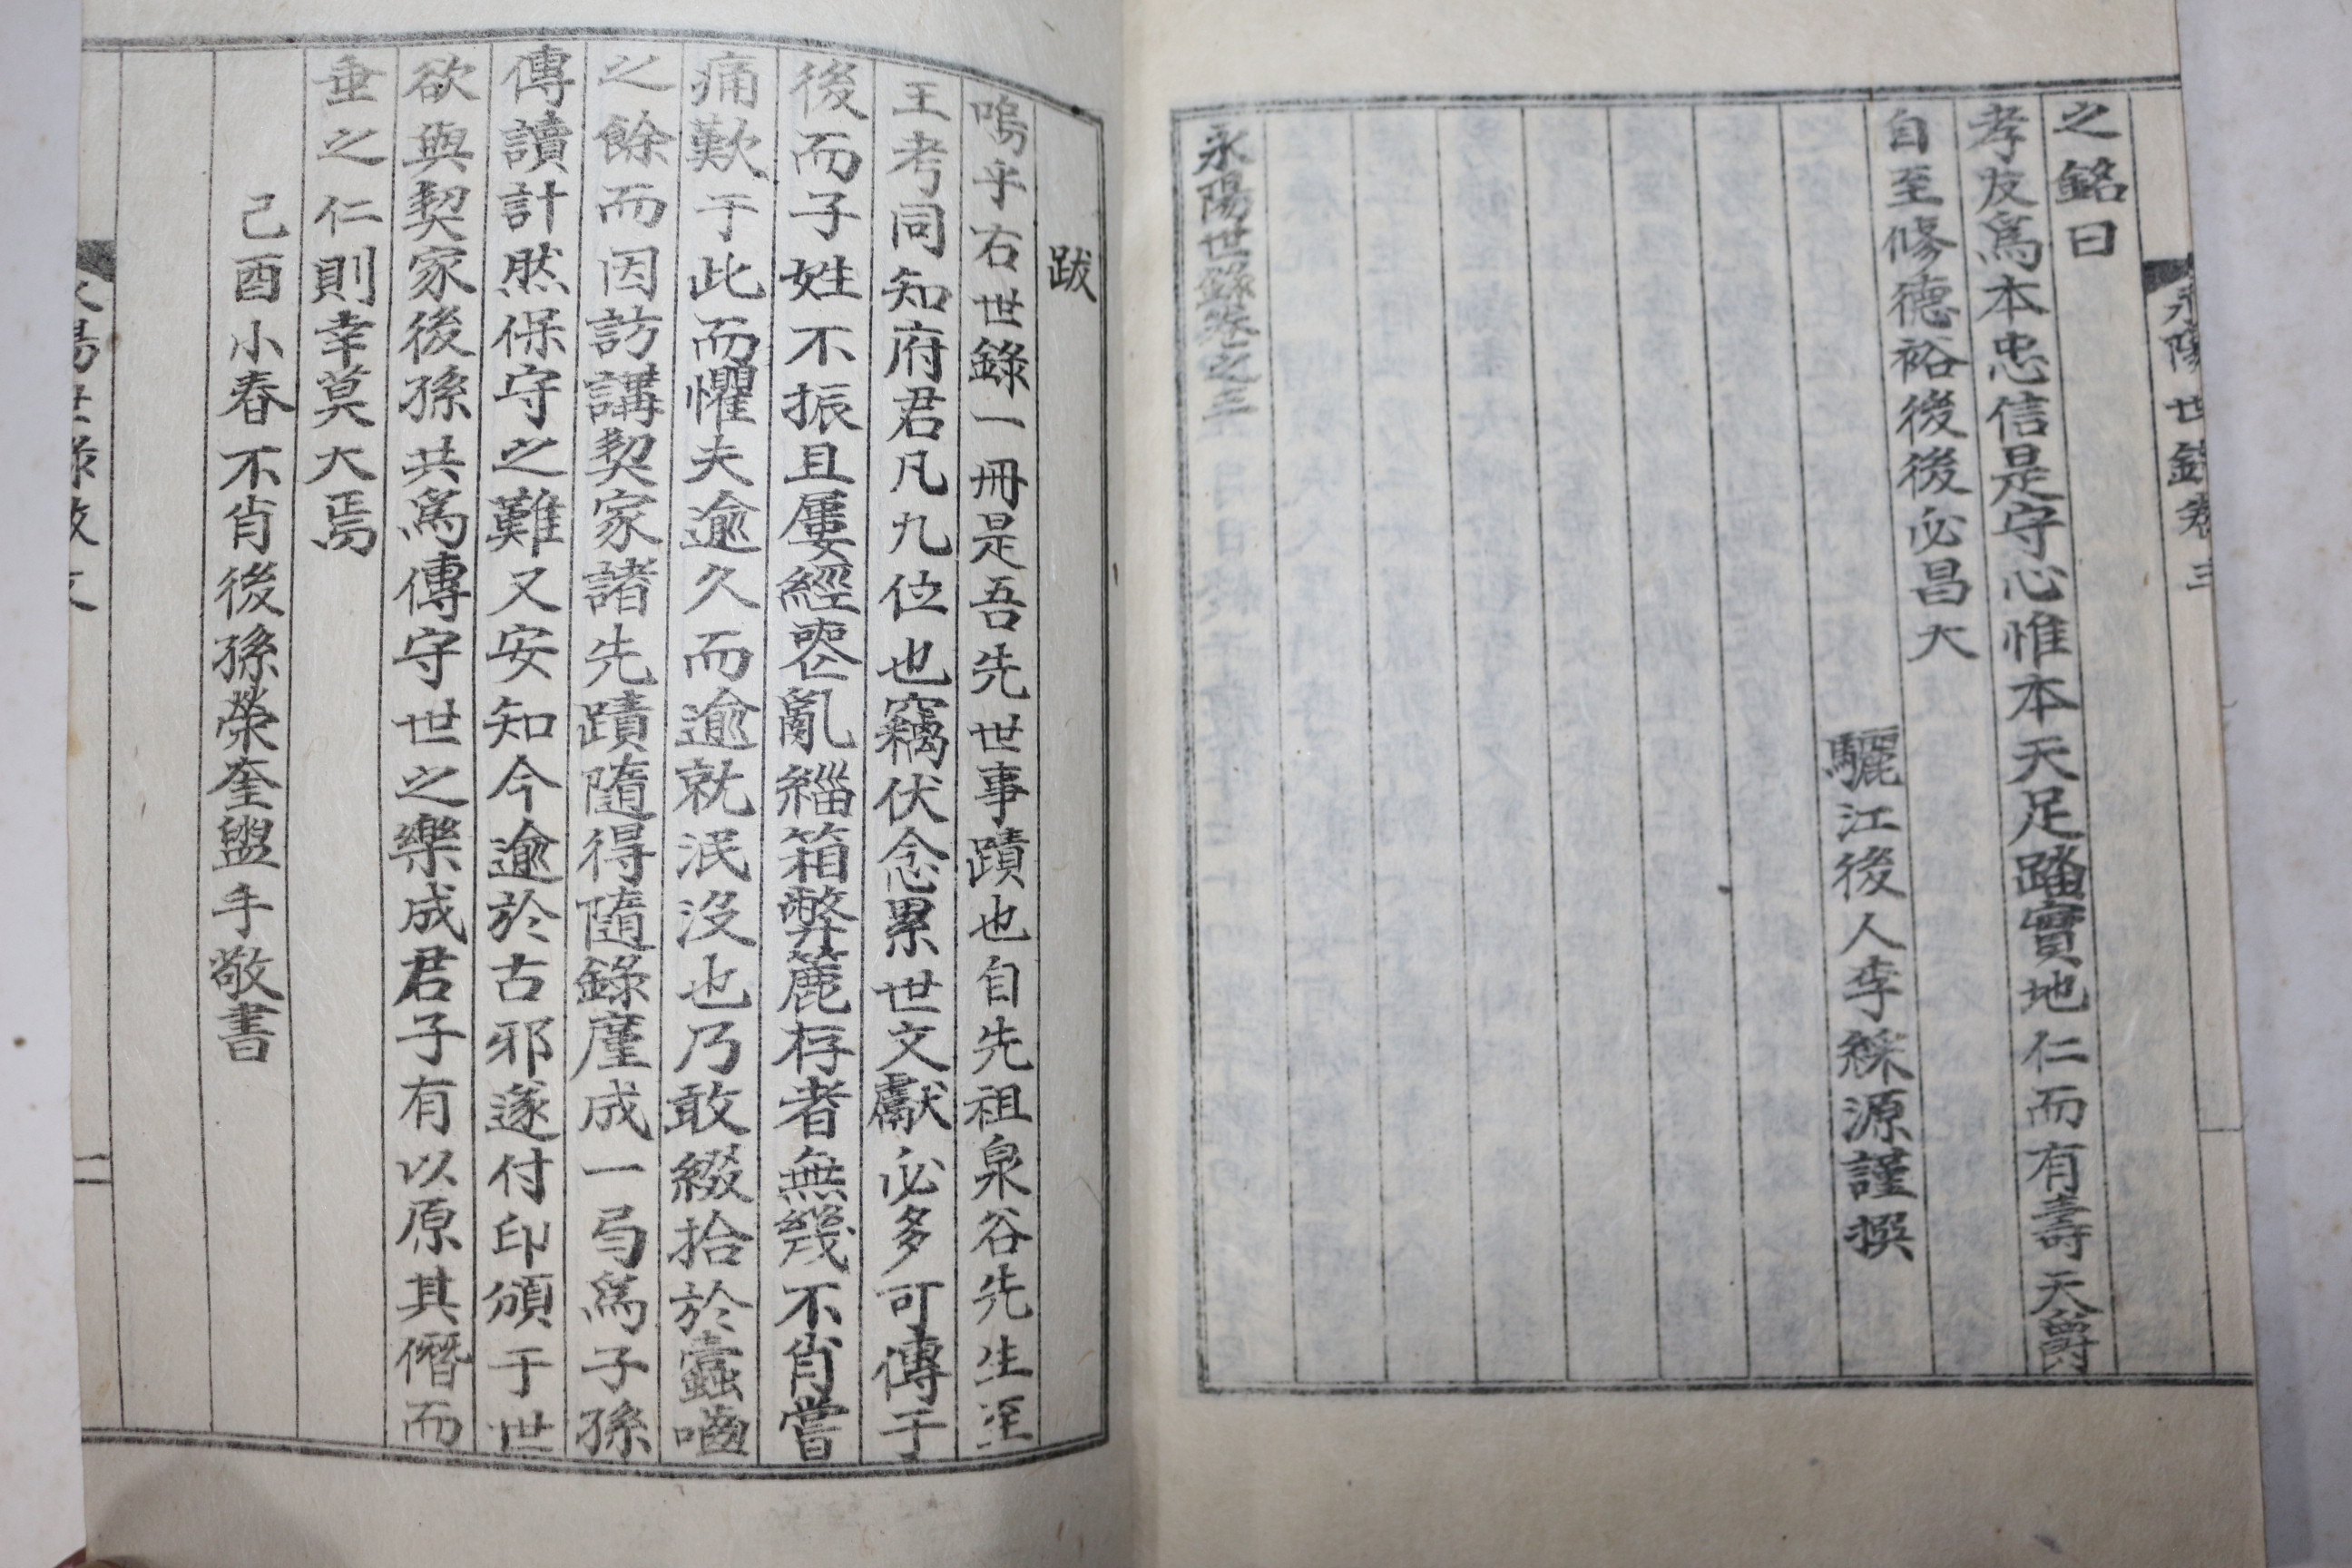 永陽世錄卷三
之銘曰
孝友爲本忠信是守心惟本天足踏實地仁而有壽天爵
自至修德裕後後必昌大
驪江後人李綵源謹撰
永陽世錄卷之三
跋
嗚乎右世錄一冊是吾先世事蹟也自先祖泉谷先生至
王考同知府君凡九位也竊伏念累世文獻必多可傳于
後而子姓不振且屢經喪亂緇箱弊簏存者無幾不肖嘗
痛歎于此而懼夫逾久而逾就泯沒也乃敢綴拾於蠹嚙
之餘而因訪講契家諸先蹟隨得隨錄廑成一弓爲子孫
傳讀計然保守之難又安知今逾於古邪遂付印頒于世
欲與契家後孫共爲傳守世之樂成君子有以原其僭而
垂之仁則幸莫大焉
己酉小春不肖後孫榮奎盥手敬書
永陽世錄跋文
二